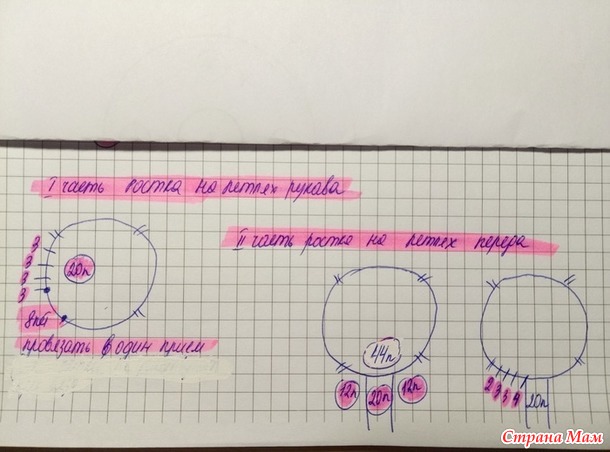 I часть ростка на петлях рукава
II часть ростка на петлях переда
3
3
3
3
20п
8пет
провязать в один прием
44п
12п 20п 12п
2 3 3 4 20п
Страна Мам